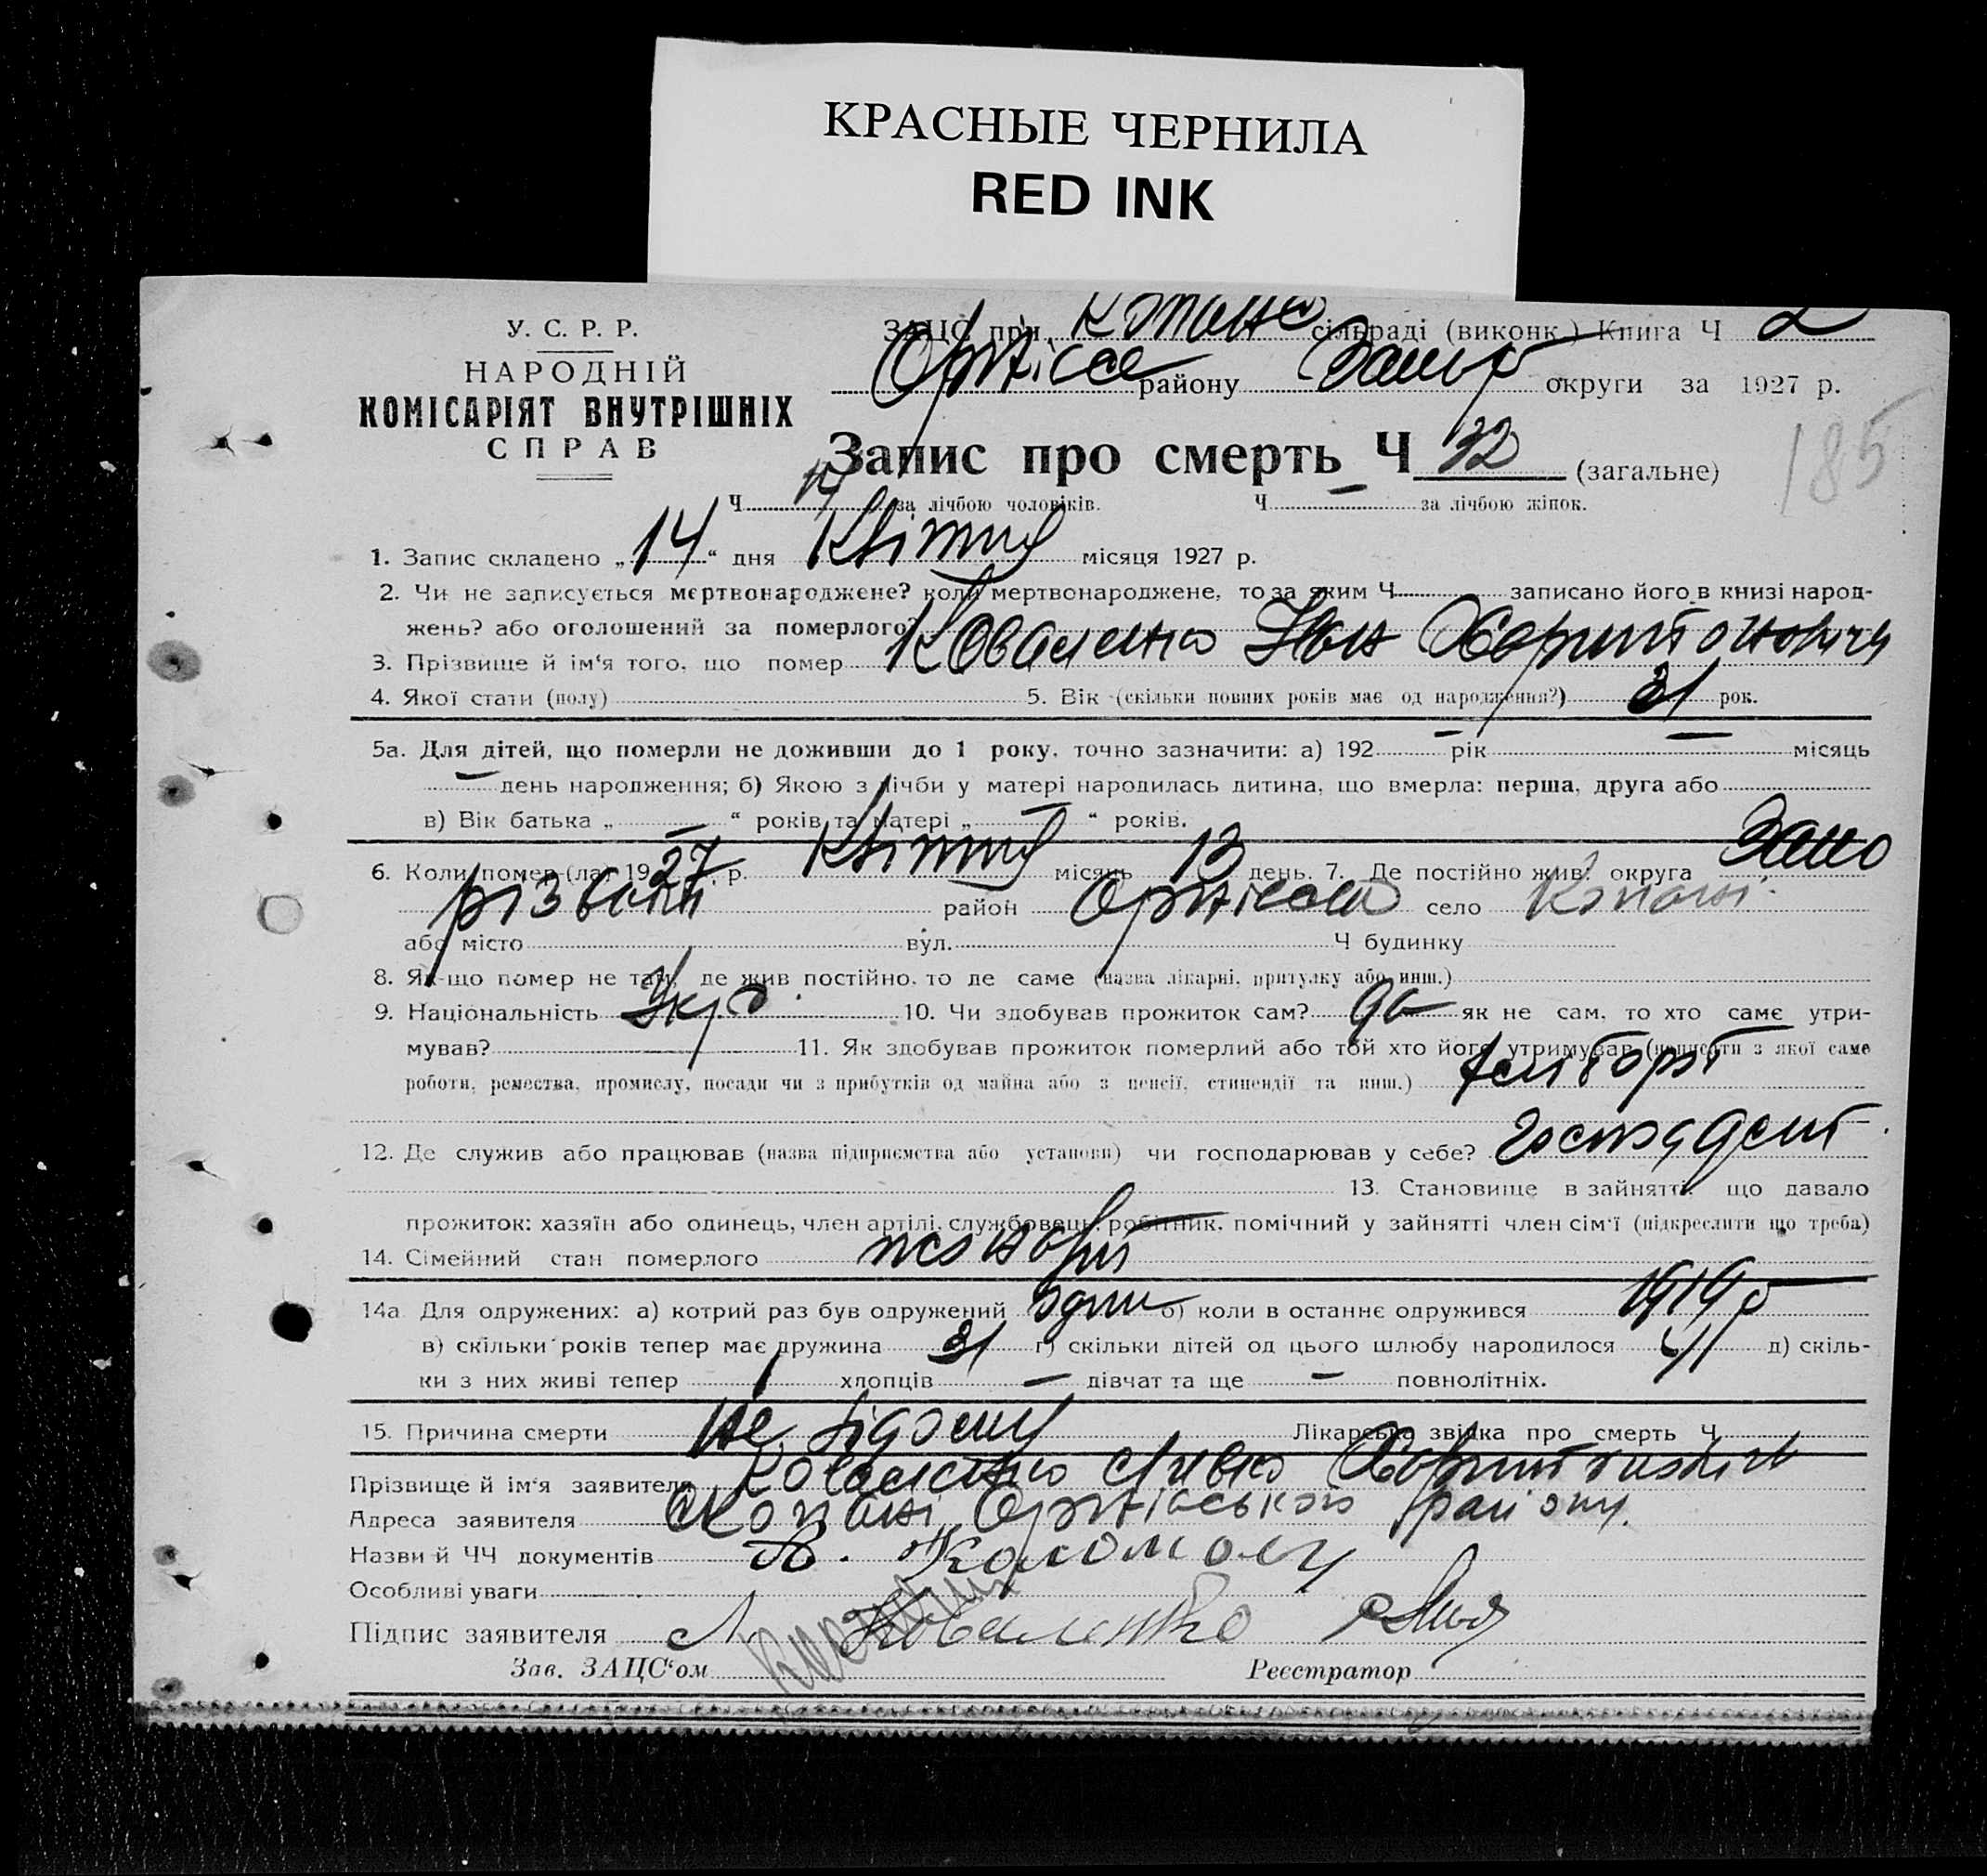 КРАСНЫЕ ЧЕРНИЛА
RED INK
У. С. Р. Р.
НАРОДНІЙ
КОМІСАРІЯТ ВНУТРІШНІХ
СПРАВ
ЗАЦС при Копане сільраді (виконк.) Книга Ч 2
району округи за 1927 р.
Запис про смерть Ч 32 (загальне)
185
Ч за лічбою чоловіків. Ч — за лічбою жінок.
1. Запис складено „14“ дня Квітня місяця 1927 р.
2. Чи не записується мертвонароджене? коли мертвонароджене, то за яким Ч записано його в книзі народ-
жень? або оголошений за померлого?
3. Прізвище й ім‘я того, що помер Коваленко Іван Харитонович
4. Якої стати (полу) 5. Вік (скільки повних років має од народження?) 31 рок.
5а. Для дітей, що померли не доживши до 1 року, точно зазначити: а) 192 — рік — місяць
— день народження; б) Якою з лічби у матері народилась дитина, що вмерла: перша, друга або
в) Вік батька „ — “ років та матері „ — “ років.
6. Коли помер (ла) 1927 р. Квітня місяць 13 день. 7. Де постійно жив: округа Запо
різький район Оріхівськ село Копані
або місто вул. Ч будинку
8. Як-що помер не там, де жив постійно, то де саме (назва лікарні, притулку або инш.)
9. Національність Укр 10. Чи здобував прожиток сам? да як не сам, то хто саме утри-
мував? 11. Як здобував прожиток померлий або той хто його утримував (написати з якої саме
роботи, ремества, промислу, посади чи з прибутків од майна або з пенсії, стипендії та инш.) хлібороб
12. Де служив або працював (назва підприємства або установи) чи господарював у себе?
13. Становище в зайнятті, що давало
прожиток: хазяїн або одинець, член артілі, службовець, робітник, помічний у зайнятті член сім‘ї (підкреслити що треба)
14. Сімейний стан померлого жонатий
14а. Для одружених: а) котрий раз був одружений один б) коли в останнє одружився 1919 р
в) скільки років тепер має дружина 31 г) скільки дітей од цього шлюбу народилося д) скіль-
ки з них живі тепер 1 хлопців — дівчат та ще — повнолітніх.
15. Причина смерти Не відому Лікарська звідка про смерть Ч
Прізвище й ім‘я заявителя Коваленко Харитонович
Адреса заявителя с Копані Оріхівського району.
Назви й ЧЧ документів
Особливі уваги
Підпис заявителя Коваленко
Зав. ЗАЦС‘ом Реєстратор